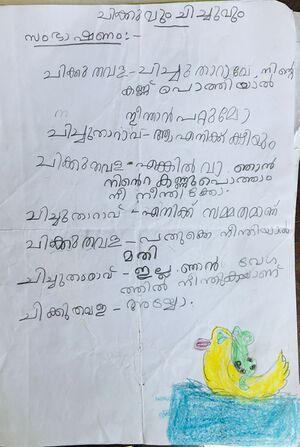 ചിക്കുവും ചിച്ചുവും
സംഭാഷണം:-
ചിക്കുതവള - ചിച്ചു താറാവേ നിന്റെ
കണ്ണ് പൊത്തിയാൽ
നീന്താൻ പറ്റുമോ
ചിച്ചുതാറാവ് - ആ എനിക്ക് കഴിയും
ചിക്കു തവള - എങ്കിൽ വാ. ഞാൻ
നിന്റെ കണ്ണുപൊത്താം
നീ നീന്തിക്കോ.
ചിച്ചുതാറാവ് - എനിക്ക് സമ്മതമാണ്
ചിക്കു തവള - പതുക്കെ നീന്തിയാൽ
മതി
ചിച്ചുതാറാവ് - ഇല്ല ഞാൻ വേഗ
ത്തിൽ നീന്തുകയാണ്
ചിക്കുതവള - അയ്യോ.